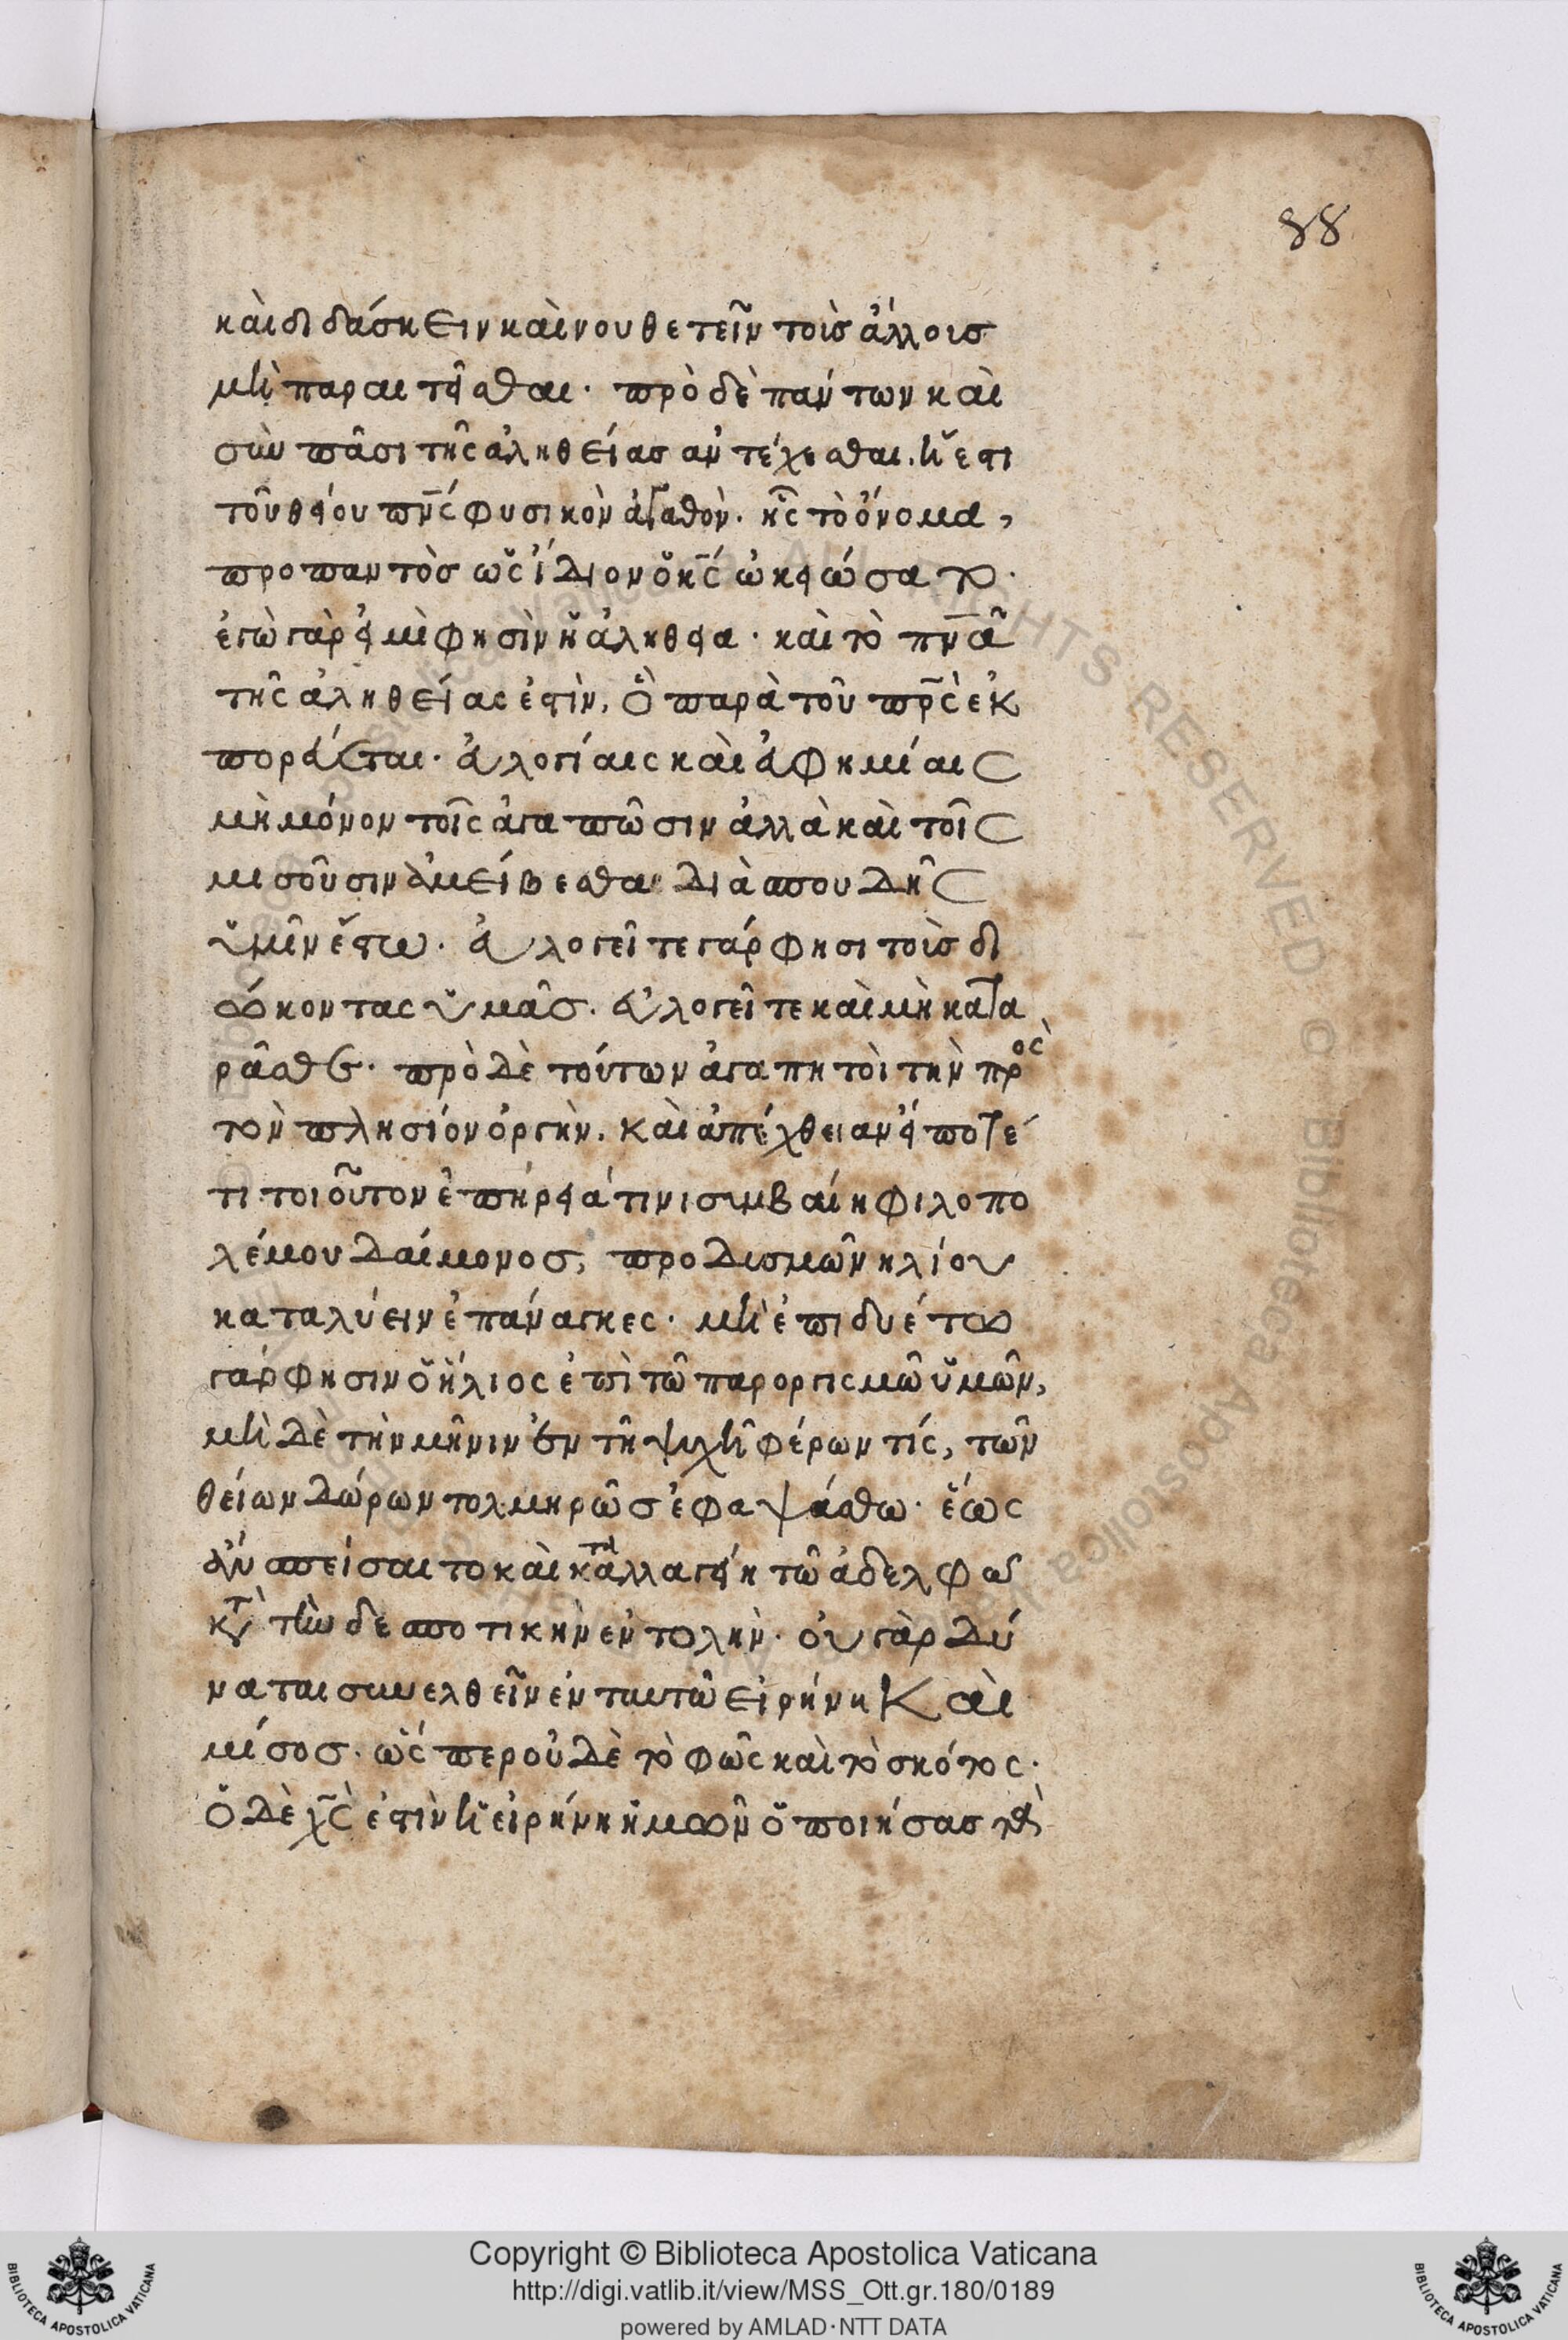 88
καὶ διδάσκειν καὶ νουθετεῖν τοὶς ἄλλοισ
μὴ παραιτεῖσθαι· πρὸ δὲ πάντων καὶ
σὺν πᾶσι τῆς ἀληθείας ἀντέχεσθαι. ἥ ἐστι
τοῦ θείου πν̅ς φυσικὸν ἀγαθὸν. ἧς τὸ ὄνομα,
προπαντὸσ ὡς ἴδιον ὁ κ̅ς ὠκειώσατο·
ἐγὼ γὰρ εἰμὶ φησὶν ἡ ἀλήθεια· καὶ τὸ πν̅α
τῆς ἀληθείας ἐστὶν, ὃ παρὰ τοῦ πρ̅ς ἐκ
πορεύεται· εὐλογίαις καὶ εὐφημίαις
μὴ μόνον τοῖς ἀγαπῶσιν ἀλλὰ καὶ τοῖς
μισοῦσιν ἀμείβεσθαι διὰ σπουδῆς
ὑμῖν ἔστω. εὐλογεῖτε γάρ φησι τοὶσ δι
ώκοντας ὑμᾶσ. εὐλογεῖτε καὶ μὴ κατα
ρᾶσθε· πρὸ δὲ τούτων ἀγαπητοὶ τὴν πρὸς
τὸν πλησίον ὀργὴν. καὶ ἀπέχθειαν εἴποτέ
τι τοιοῦτον ἐπηρείά τινι συμβαίη φιλοπο
λέμου δαίμονοσ, προ δυσμῶν ηλίου
καταλύειν ἐπάναγκες· μὴ ἐπιδυέτω
γάρ φησιν ὁ ἥλιος ἐπὶ τῶ παροργισμῶ ὑμῶν,
μὴ δὲ τὴν μῆνιν ἐν τῆ ψυχῆ φέρων τίς, τῶν
θείων δώρων τολμηρῶσ ἐφαψάσθω· ἕως
ἂν σπείσαιτο καὶ καταλλαγείη τῶ ἀδελφῶ
κατὰ τὴν δεσποτικὴν εντολὴν· οὐ γὰρ δύ
ναται συνελθεῖν ἐν ταυτῶ εἰρήνη καὶ
μίσοσ· ὥς περ οὐδὲ τὸ φῶς καὶ τὸ σκότος·
ὁ δὲ χ̅ς ἐστὶν ἡ εἰρήνη ἡμῶν ὁ ποιήσασ τὰ
Copyright © Biblioteca Apostolica Vaticana
http://digi.vatlib.it/view/MSS_Ott.gr.180/0189
powered by AMLAD·NTT DATA
BIBLIOTECA APOSTOLICA VATICANA
BIBLIOTECA APOSTOLICA VATICANA